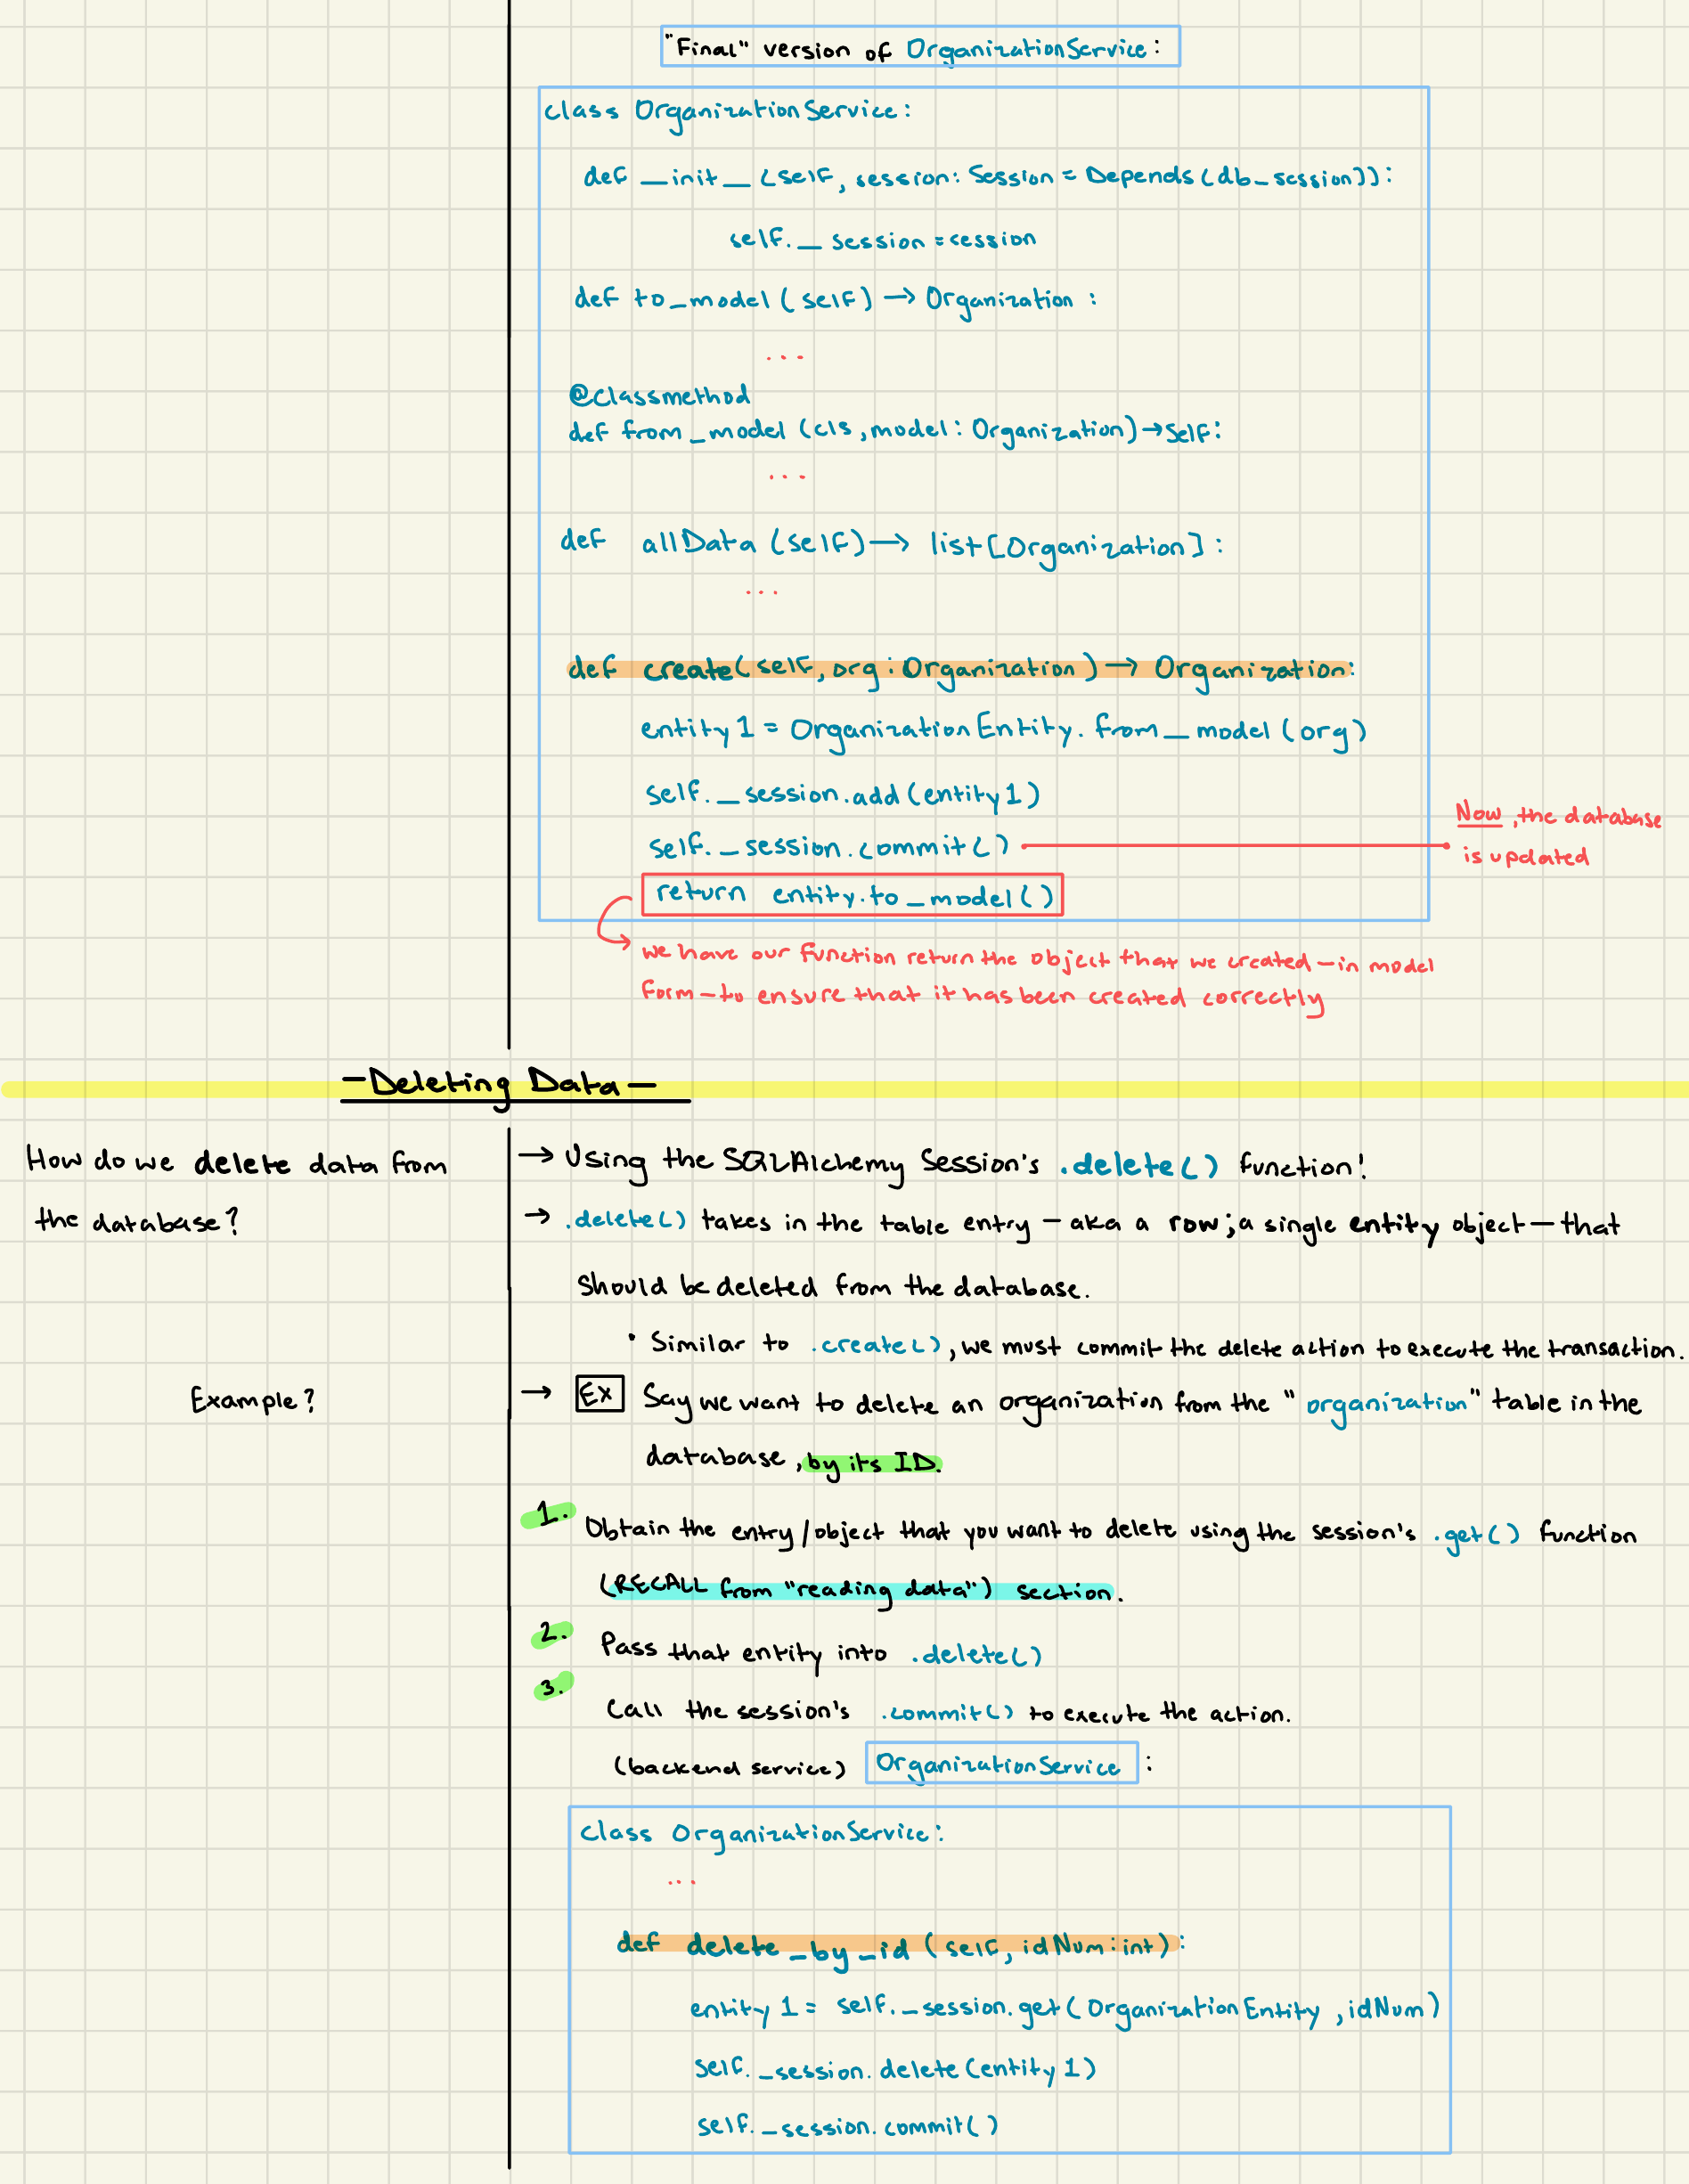 "Final" version of OrganizationService:
class OrganizationService:
def __init__(self, session: Session = Depends(db_session)):
self._session = session
def to_model(self) → Organization:
...
@classmethod
def from_model(cls, model: Organization) → Self:
...
def allData(self) → list[Organization]:
...
def create(self, org: Organization) → Organization:
entity1 = OrganizationEntity.from_model(org)
self._session.add(entity1)
self._session.commit()
Now, the database
is updated
return entity.to_model()
we have our function return the object that we created – in model
form – to ensure that it has been created correctly
– Deleting Data –
How do we delete data from
the database?
→ Using the SQLAlchemy Session's .delete() function!
→ .delete() takes in the table entry – aka a row; a single entity object – that
should be deleted from the database.
• Similar to .create(), we must commit the delete action to execute the transaction.
Example?
→ Ex Say we want to delete an organization from the "organization" table in the
database, by its ID.
1. Obtain the entry/object that you want to delete using the session's .get() function
(RECALL from "reading data") section.
2. Pass that entity into .delete()
3. Call the session's .commit() to execute the action.
(backend service) OrganizationService:
class OrganizationService:
...
def delete_by_id(self, idNum: int):
entity1 = self._session.get(OrganizationEntity, idNum)
self._session.delete(entity1)
self._session.commit()